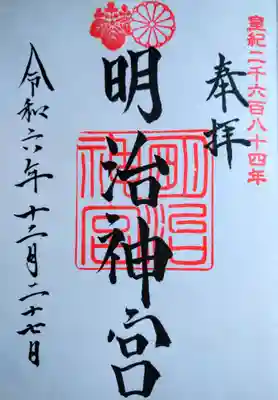 皇紀二千六百八十四年
奉拝
明治神宮
明治神宮
令和六年十二月二十七日